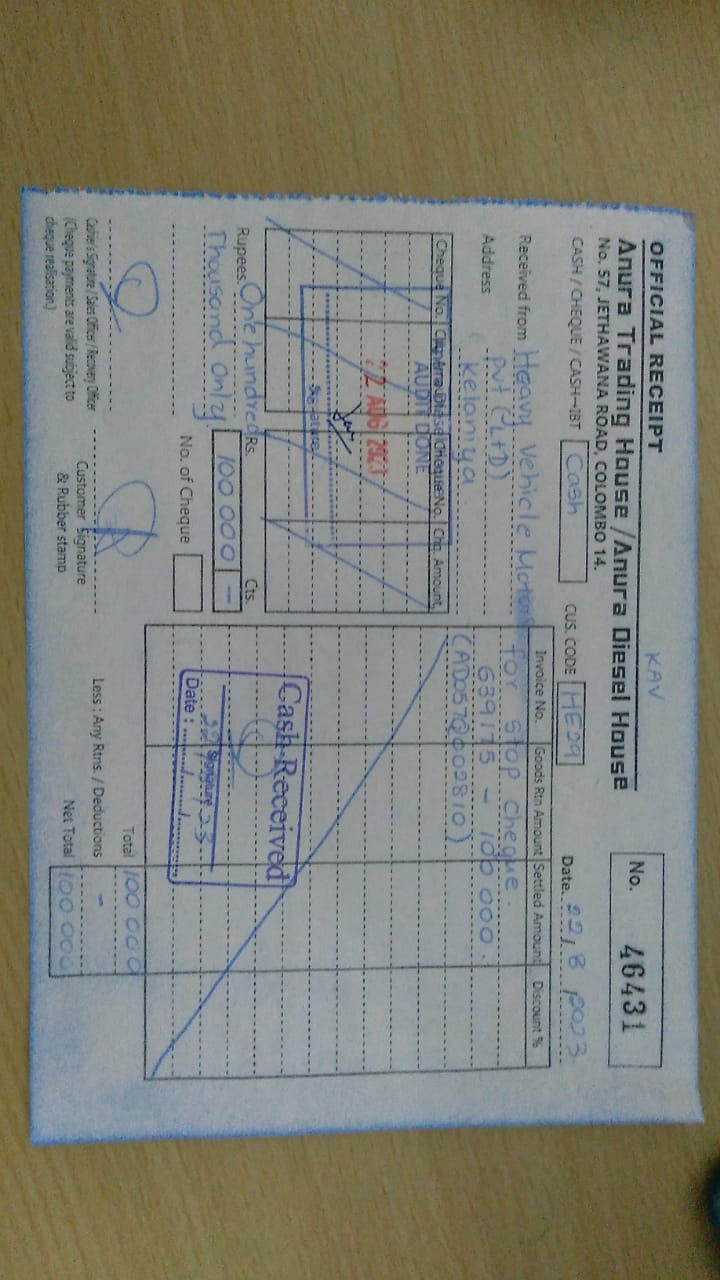 KAV
OFFICIAL RECEIPT
Anura Trading House / Anura Diesel House
No. 57, JETHAWANA ROAD, COLOMBO 14.
No. 46431
CASH / CHEQUE / CASH-IBT Cash
CUS. CODE HE29
Date. 22, 8, 2023
Received from Heavy Vehicle Motors
Put (LtD)
Address Kelaniya
Cheque No. Chq. Amount Cheque No. Chq. Amount
AUDIT DONE
22 AUG 2023
Signature
Rupees One hundred
Thousand only
Rs. Cts.
100 000 -
No. of Cheque
Invoice No. Goods Rtn Amount Settled Amount Discount %
for stop cheque.
639175 - 100 000.
(AD057Q002810)
Cash Received
Signature
Date :
Total 100 000
Less : Any Rtns. / Deductions -
Net Total 100 000
Cashier's Signature / Sales Officer / Recovery Officer
(Cheque payments are valid subject to
cheque realisation.)
Customer Signature
& Rubber stamp